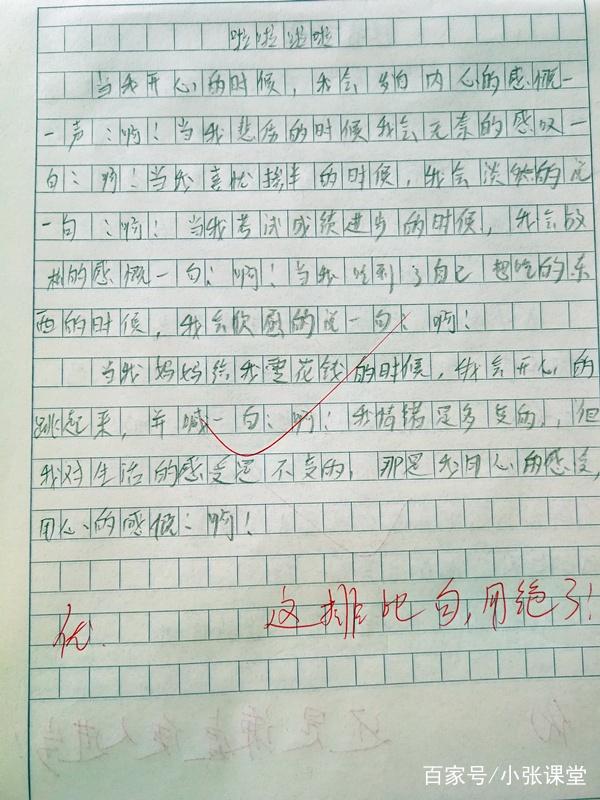 啦啦啦啦
当我开心的时候，我会发自内心的感慨一
一声：啊！当我悲伤的时候我会无奈的感叹一
句：啊！当我喜忧掺半的时候，我会淡然的说
一句：啊！当我考试成绩进步的时候，我会放
的感慨一句：啊！当我吃到了自己想吃的东
西的时候，我会欣慰的说一句：啊！
当我妈妈给我零花钱的时候，我会开心的
跳起来，并喊一句：啊！我情绪是多变的，但
我对生活的感受是不变的，那是我用心的感受，
用心的感慨：啊！
优
这排比句，用绝了！
还是谦虚使人进步
百家号/小张课堂